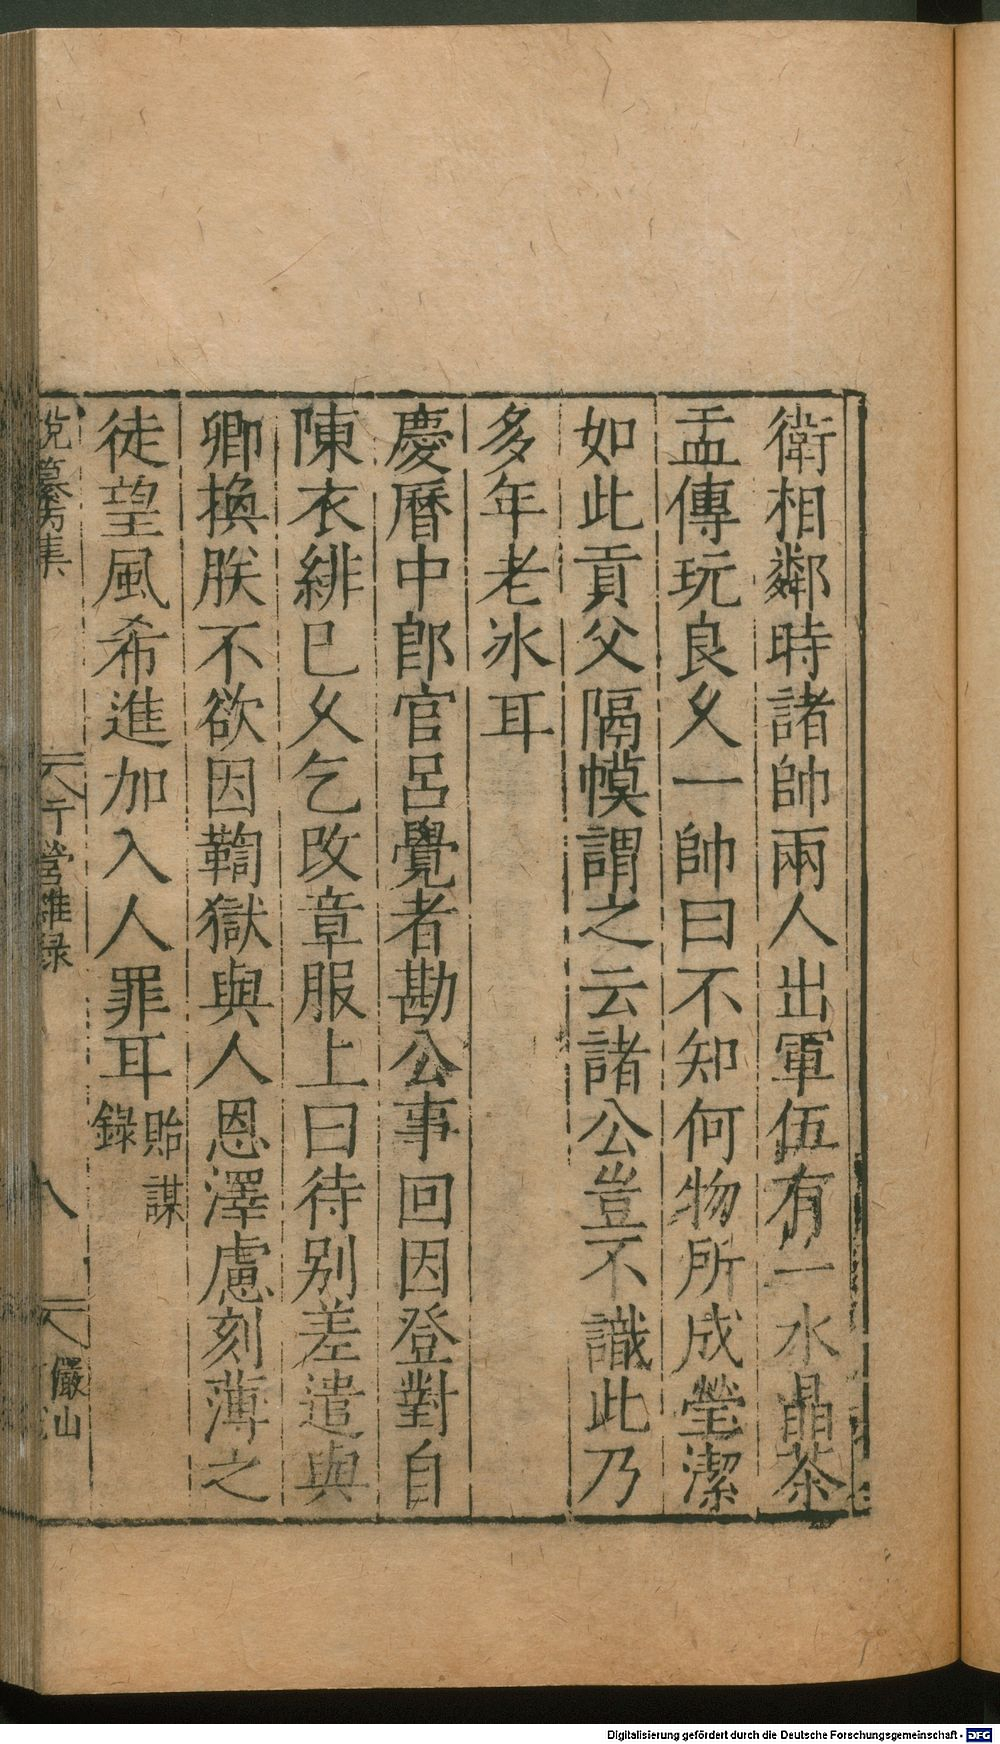 衛相鄰時諸帥兩人出軍伍有一水晶茶
盂傳玩良乆一帥曰不知何物所成瑩潔
如此貢父隔幙謂之云諸公豈不識此乃
多年老冰耳
慶曆中郎官呂覺者勘公事回因登對自
陳衣緋巳乆乞改章服上曰待别差遣與
卿換朕不欲因鞫獄與人恩澤慮刻薄之
徒望風希進加入人罪耳貽謀
錄
説纂另集
行營雜録
八
儼山
Digitalisierung gefördert durch die Deutsche Forschungsgemeinschaft - DFG